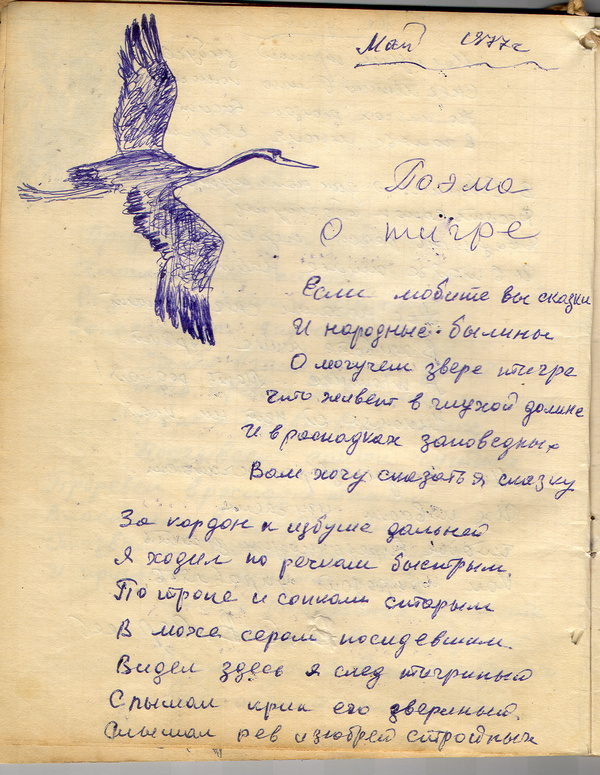 Май 1977г
Поэма
о тигре
Если любите вы сказки
И народные былины
О могучем звере тигре
что живет в глухой долине
И в распадках заповедных
Вам хочу сказать я сказку
За кордон к избушке дальней
Я ходил по речкам быстрым.
По тропе и сопкам старым
В мохе сером поседевшим.
Видел здесь я след тигриный
Слышал крик его звериный.
Слышал рев изюбрей стройных